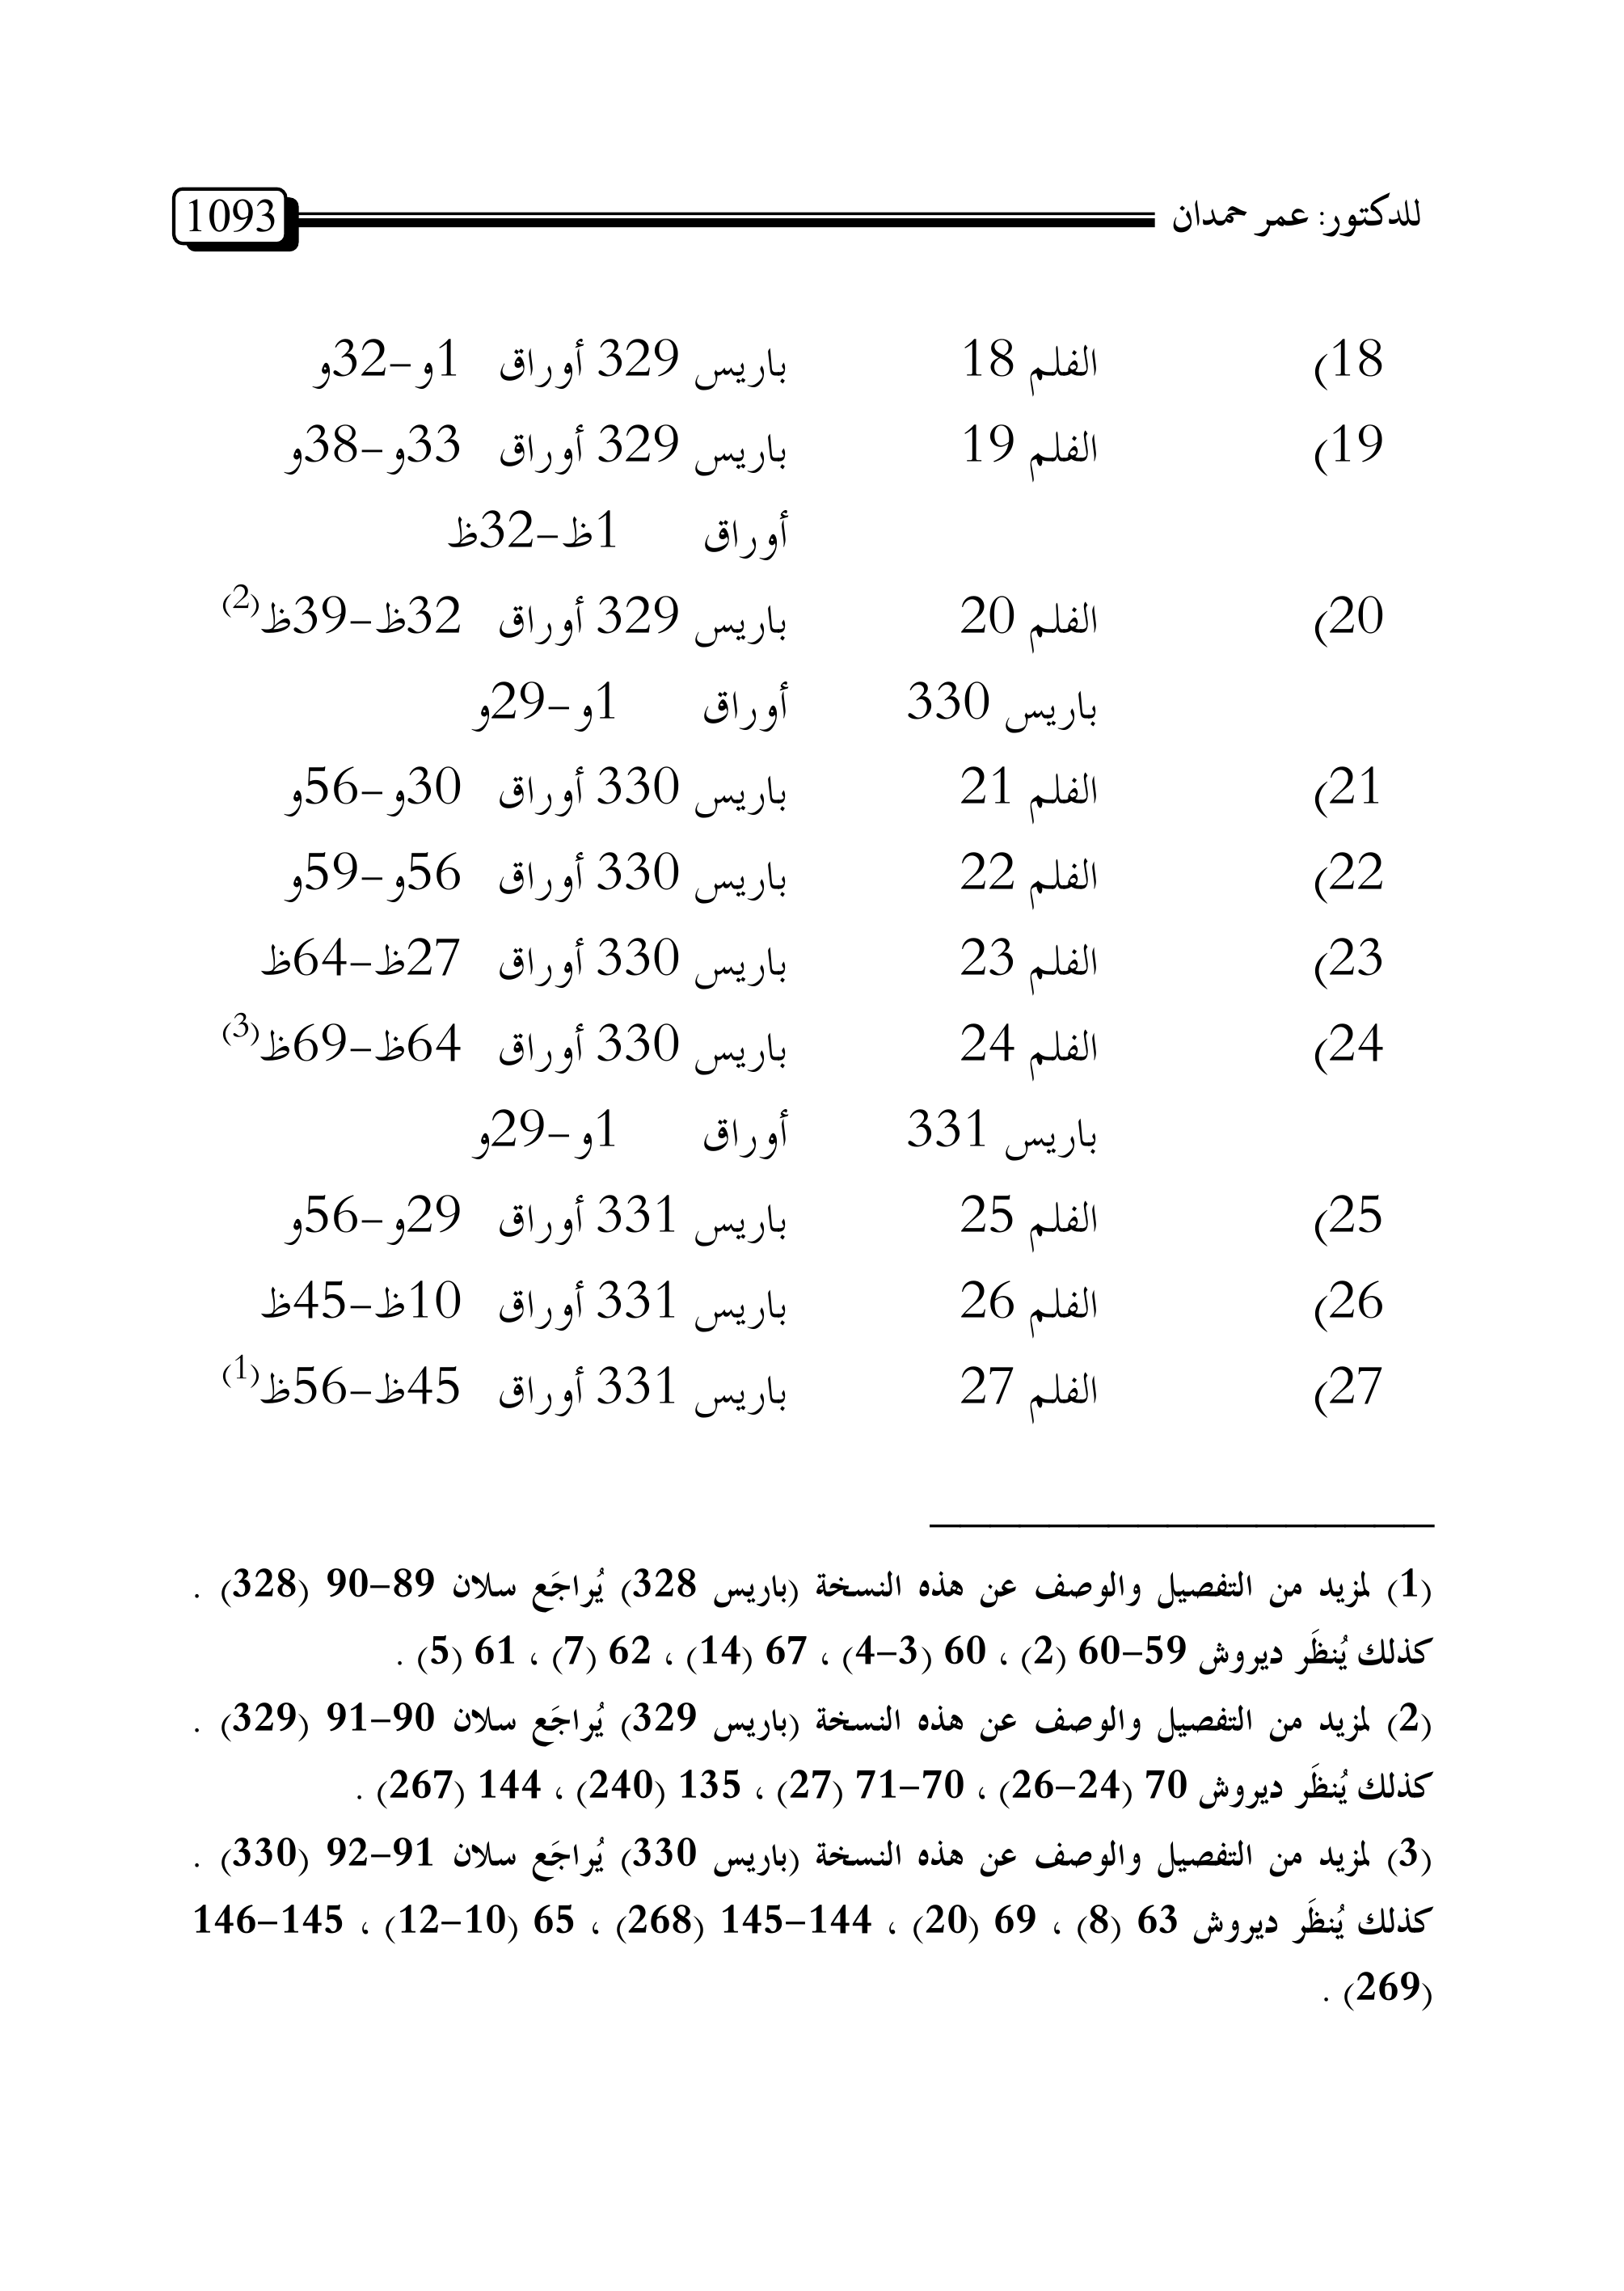 للدكتور: عمر حمدان 1093
18) الفلم 18 باريس 329 أوراق 1و–32و
19) الفلم 19 باريس 329 أوراق 33و–38و
أوراق 1ظ–32ظ
20) الفلم 20 باريس 329 أوراق 32ظ–39ظ(2)
باريس 330 أوراق 1و–29و
21) الفلم 21 باريس 330 أوراق 30و–56و
22) الفلم 22 باريس 330 أوراق 56و–59و
23) الفلم 23 باريس 330 أوراق 27ظ–64ظ
24) الفلم 24 باريس 330 أوراق 64ظ–69ظ(3)
باريس 331 أوراق 1و–29و
25) الفلم 25 باريس 331 أوراق 29و–56و
26) الفلم 26 باريس 331 أوراق 10ظ–45ظ
27) الفلم 27 باريس 331 أوراق 45ظ–56ظ(1)
(1) لمزيد من التفصيل والوصف عن هذه النسخة (باريس 328) يُراجَع سلان 89–90 (328) .
كذلك يُنظَر ديروش 59–60 (2) ، 60 (3–4) ، 67 (14) ، 62 (7) ، 61 (5) .
(2) لمزيد من التفصيل والوصف عن هذه النسخة (باريس 329) يُراجَع سلان 90–91 (329) .
كذلك يُنظَر ديروش 70 (24–26) ، 70–71 (27) ، 135 (240) ، 144 (267) .
(3) لمزيد من التفصيل والوصف عن هذه النسخة (باريس 330) يُراجَع سلان 91–92 (330) .
كذلك يُنظَر ديروش 63 (8) ، 69 (20) ، 144–145 (268) ، 65 (10–12) ، 145–146
(269) .